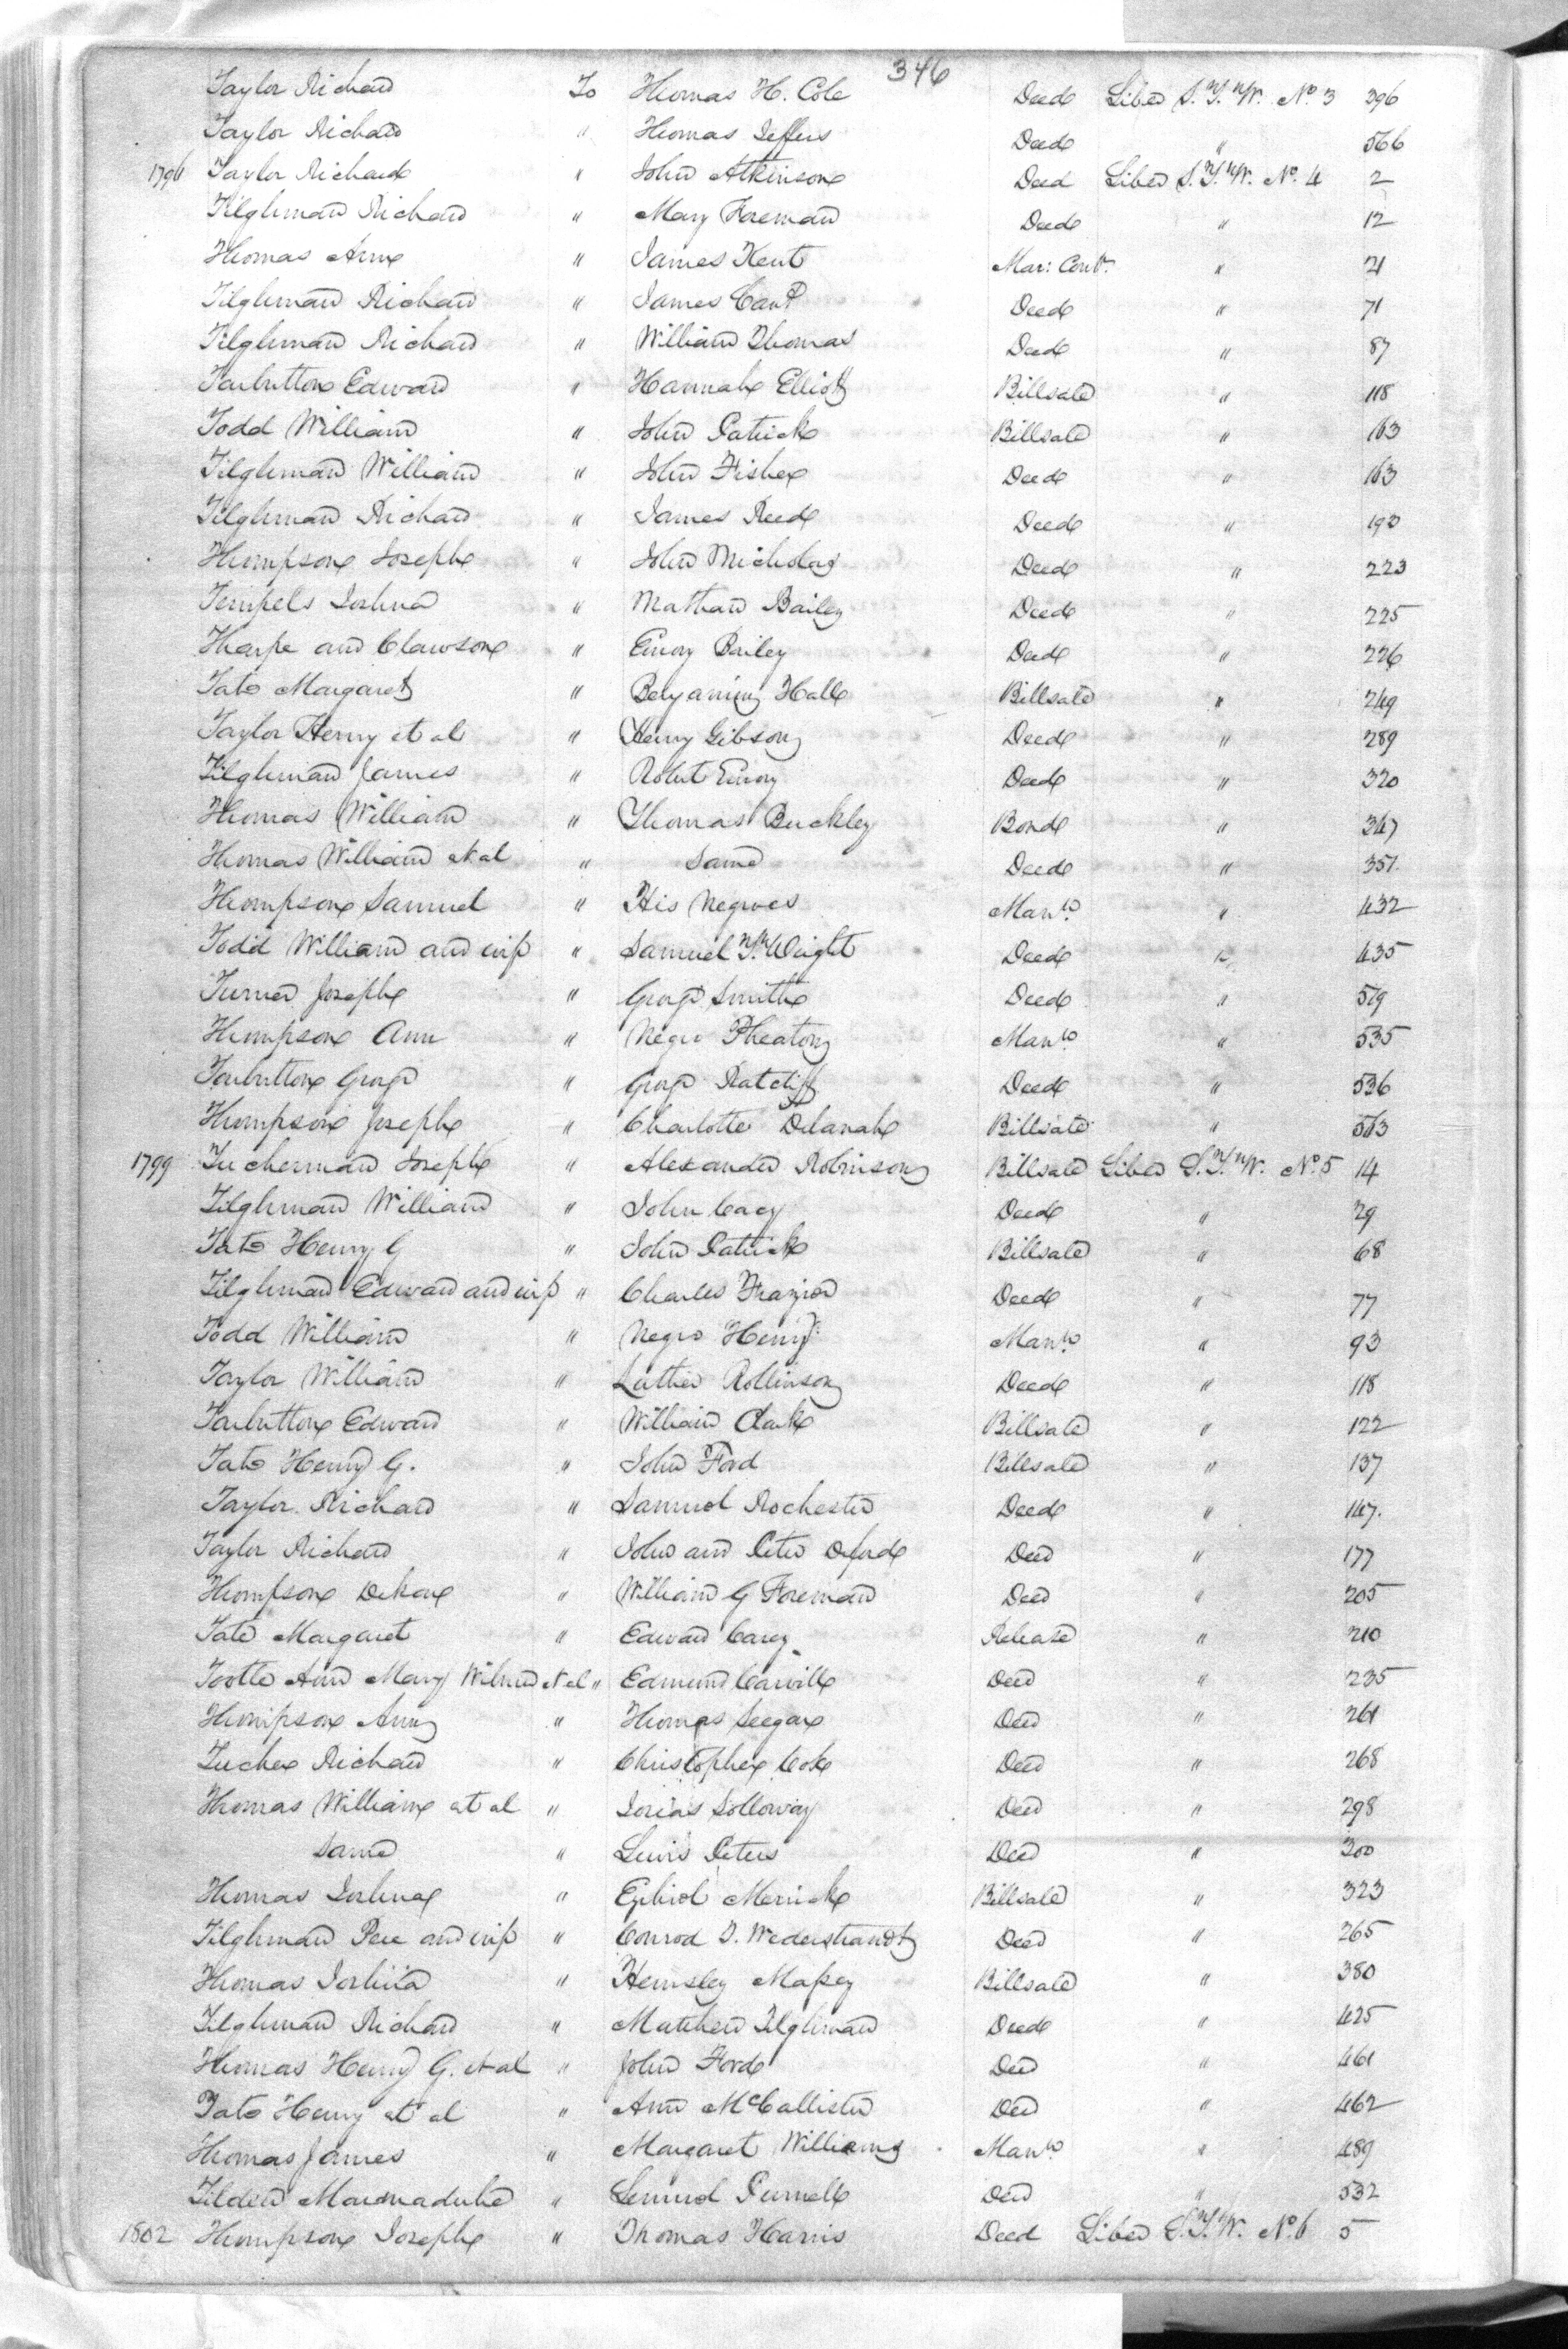 346
Taylor Richard To Thomas H. Cole Deed Liber S.T.W. No 3 396
Taylor Richard " Thomas Jeffers Deed " 566
1796 Taylor Richard " John Atkinson Deed Liber S.T.W. No. 4 2
Tilghman Richard " Mary Foreman Deed " 12
Thomas Ann " James Kent Mar: Cont. " 21
Tilghman Richard " James Deed " 71
Tilghman Richard " William Thomas Deed " 87
Tarbutton Edward " Hannah Elliott Billsale " 118
Todd William " John Patrick Billsale " 163
Tilghman William " John Fisher Deed " 163
Tilghman Richard " James Reed Deed " 190
Thompson Joseph " John Nicholas Deed " 223
Tempels Joshua " Nathan Bailey Deed " 225
Tharpe and Clawson " Emory Bailey Deed " 226
Tate Margaret " Benjamin Hall Billsale " 249
Taylor Henry et al " Henry Gibson Deed " 289
Tilghman James " Robert Emory Deed " 320
Thomas William " Thomas Buckley Bond " 347
Thomas William et al " Same Deed " 351.
Thompson Samuel " His Negroes Man.o " 432
Todd William and wife " Samuel T. Wright Deed " 435
Turner Joseph " George Smith Deed " 519
Thompson Ann " Negro Pheaton Man.o " 535
Tarbutton George " George Ratcliff Deed " 536
Thompson Joseph " Charlotte Delanah Billsale " 563
1799 Tucherman Joseph " Alexander Robinson Billsale Liber S.T.W. No. 5 14
Tilghman William " John Cacy Deed " 29
Tate Henry G " John Patrick Billsale " 68
Tilghman Edward and wife " Charles Frazier Deed " 77
Todd William " Negro Henry Man.o " 93
Taylor William " Luther Rollinson Deed " 118
Tarbutton Edward " William Clark Billsale " 122
Tate Henry G. " John Ford Billsale " 137
Taylor Richard " Samuel Rochester Deed " 147.
Taylor Richard " John and Peter Oxford Deed " 177
Thompson Dekar " William G Foreman Deed " 205
Tate Margaret " Edward Carey Release " 210
Tootle Ann Mary Wilmer et al " Edmund Carville Deed " 235
Thompson Ann " Thomas Seegar Deed " 261
Tucker Richard " Christopher Cox Deed " 268
Thomas William et al " Josias Solloway Deed " 298
Same " Lewis Peters Deed " 300
Thomas Joshua " Merrick Billsale " 323
Tilghman Pere and wife " Conrod T. Wederstrandt Deed " 265
Thomas Joshua " Hemsley Massey Billsale " 380
Tilghman Richard " Matthew Tilghman Deed " 425
Thomas Henry G. et al " John Ford Deed " 461
Tate Henry et al " Ann McCallister Deed " 462
Thomas James " Margaret Williams Man.o " 489
Tilden Marmaduke " Lemuel Purnell Deed " 532
1802 Thompson Joseph " Thomas Harris Deed Liber S.T.W. No. 6 5